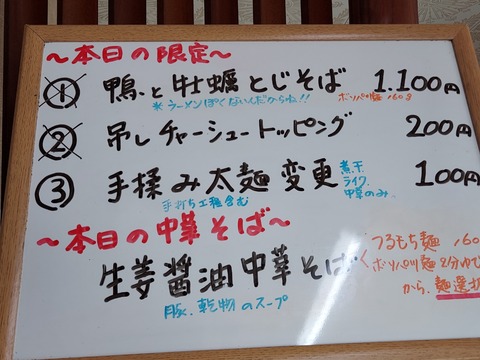 ～本日の限定～
① 鴨と牡蠣とじそば 1.100円
※ラーメンぽくないんだからね!! ボソパツ麺 160g
② 吊しチャーシュートッピング 200円
③ 手揉み太麺変更 煮干 ライク 中華のみ 100円
手打ち工程含む
～本日の中華そば～
生姜醤油中華そば
豚、乾物のスープ
つるもち麺 160
ボソパツ麺 2分ゆで
から、麺選択